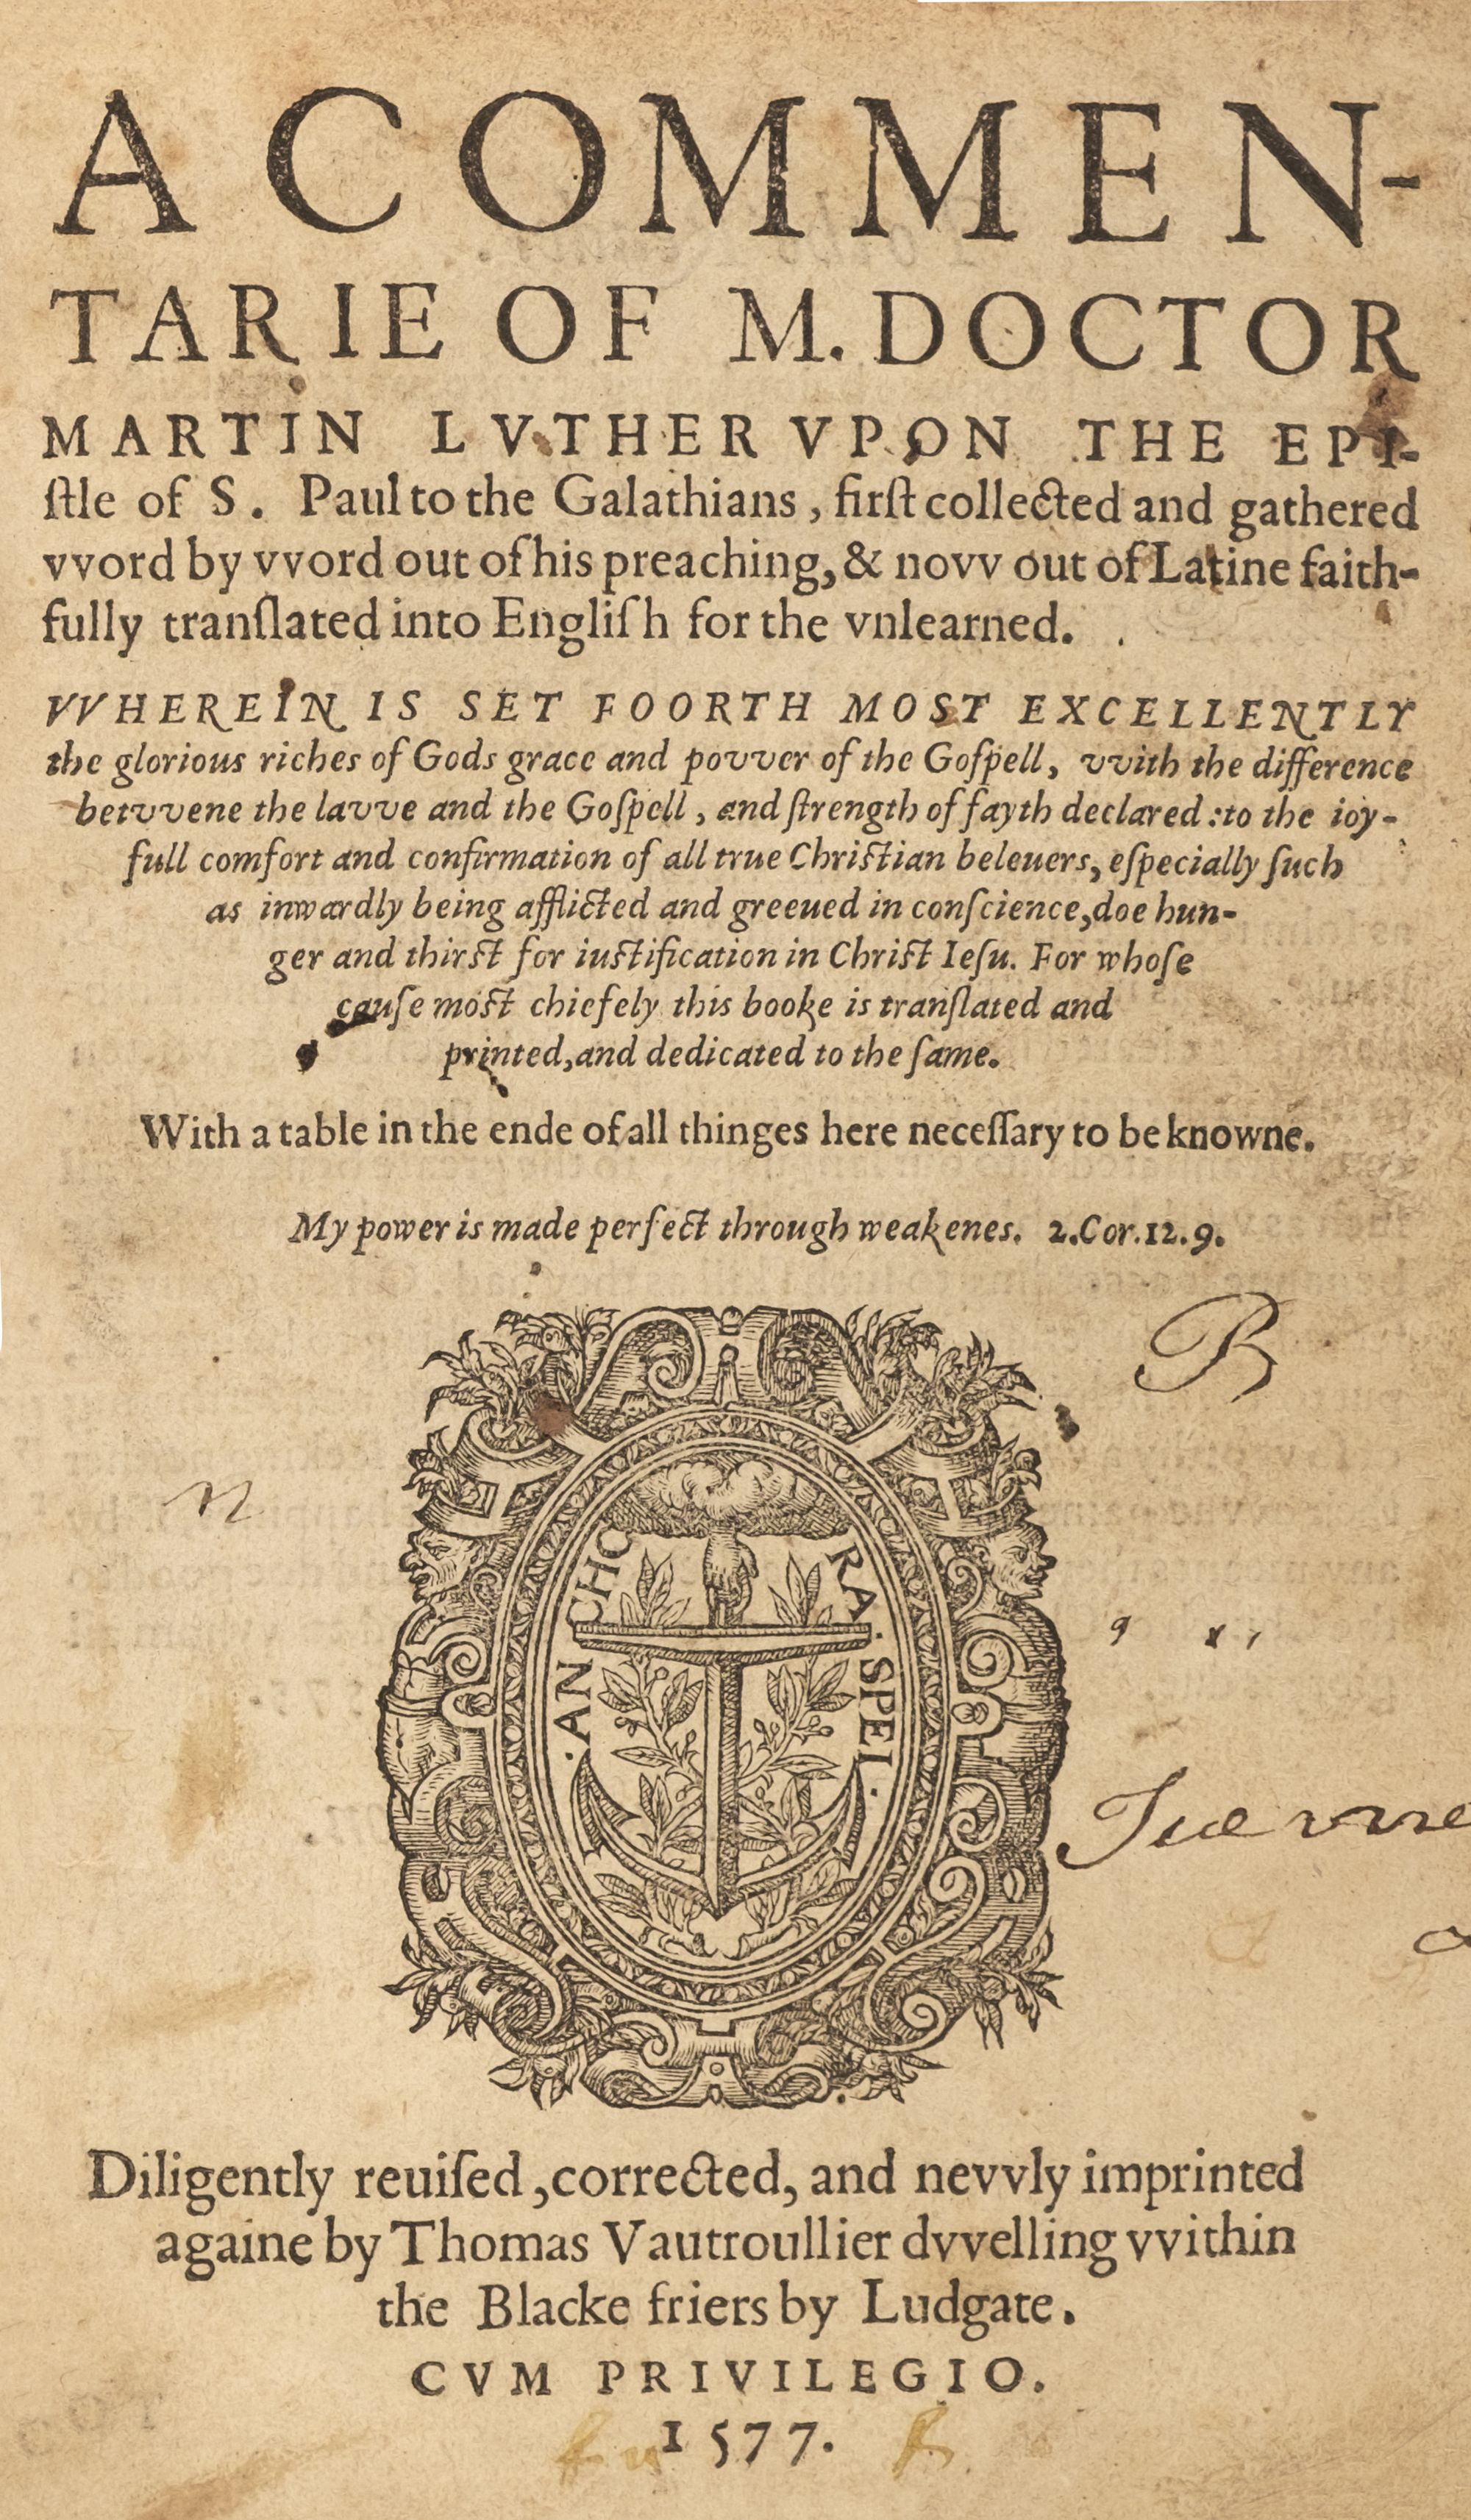 A COMMEN-
TARIE OF M. DOCTOR
MARTIN LVTHER VPON THE EPI-
ſtle of S. Paul to the Galathians, firſt collected and gathered
vvord by vvord out of his preaching, & novv out of Latine faith-
fully tranſlated into Engliſh for the vnlearned.
VVHEREIN IS SET FOORTH MOST EXCELLENTLY
the glorious riches of Gods grace and povver of the Goſpell, vvith the difference
betvvene the lavve and the Goſpell, and ſtrength of fayth declared: to the ioy-
full comfort and confirmation of all true Chriſtian beleuers, eſpecially ſuch
as inwardly being afflicted and greeued in conſcience, doe hun-
ger and thirſt for iuſtification in Chriſt Ieſu. For whoſe
cauſe moſt chiefely this booke is tranſlated and
printed, and dedicated to the ſame.
With a table in the ende of all thinges here neceſſary to be knowne.
My power is made perfect through weakenes. 2. Cor. 12. 9.
B
n
.ANCHORA. SPEI.
Diligently reuiſed, corrected, and nevvly imprinted
againe by Thomas Vautroullier dvvelling vvithin
the Blacke friers by Ludgate.
CVM PRIVILEGIO.
1577.